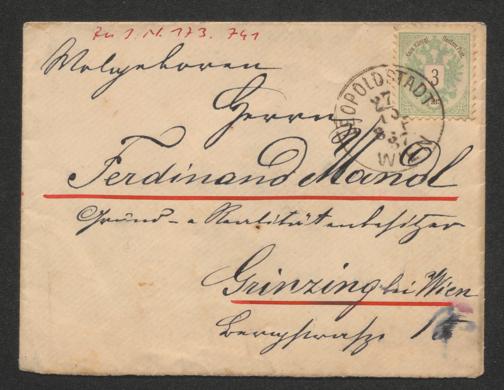 Zu I. N. 173.741
Wolgeboren
Herrn
Ferdinand Mandl
Grund- u Realitätenbesitzer
Grinzing bei Wien
Bergstrasse 15
3
LEOPOLDSTADT
27
87
WIEN